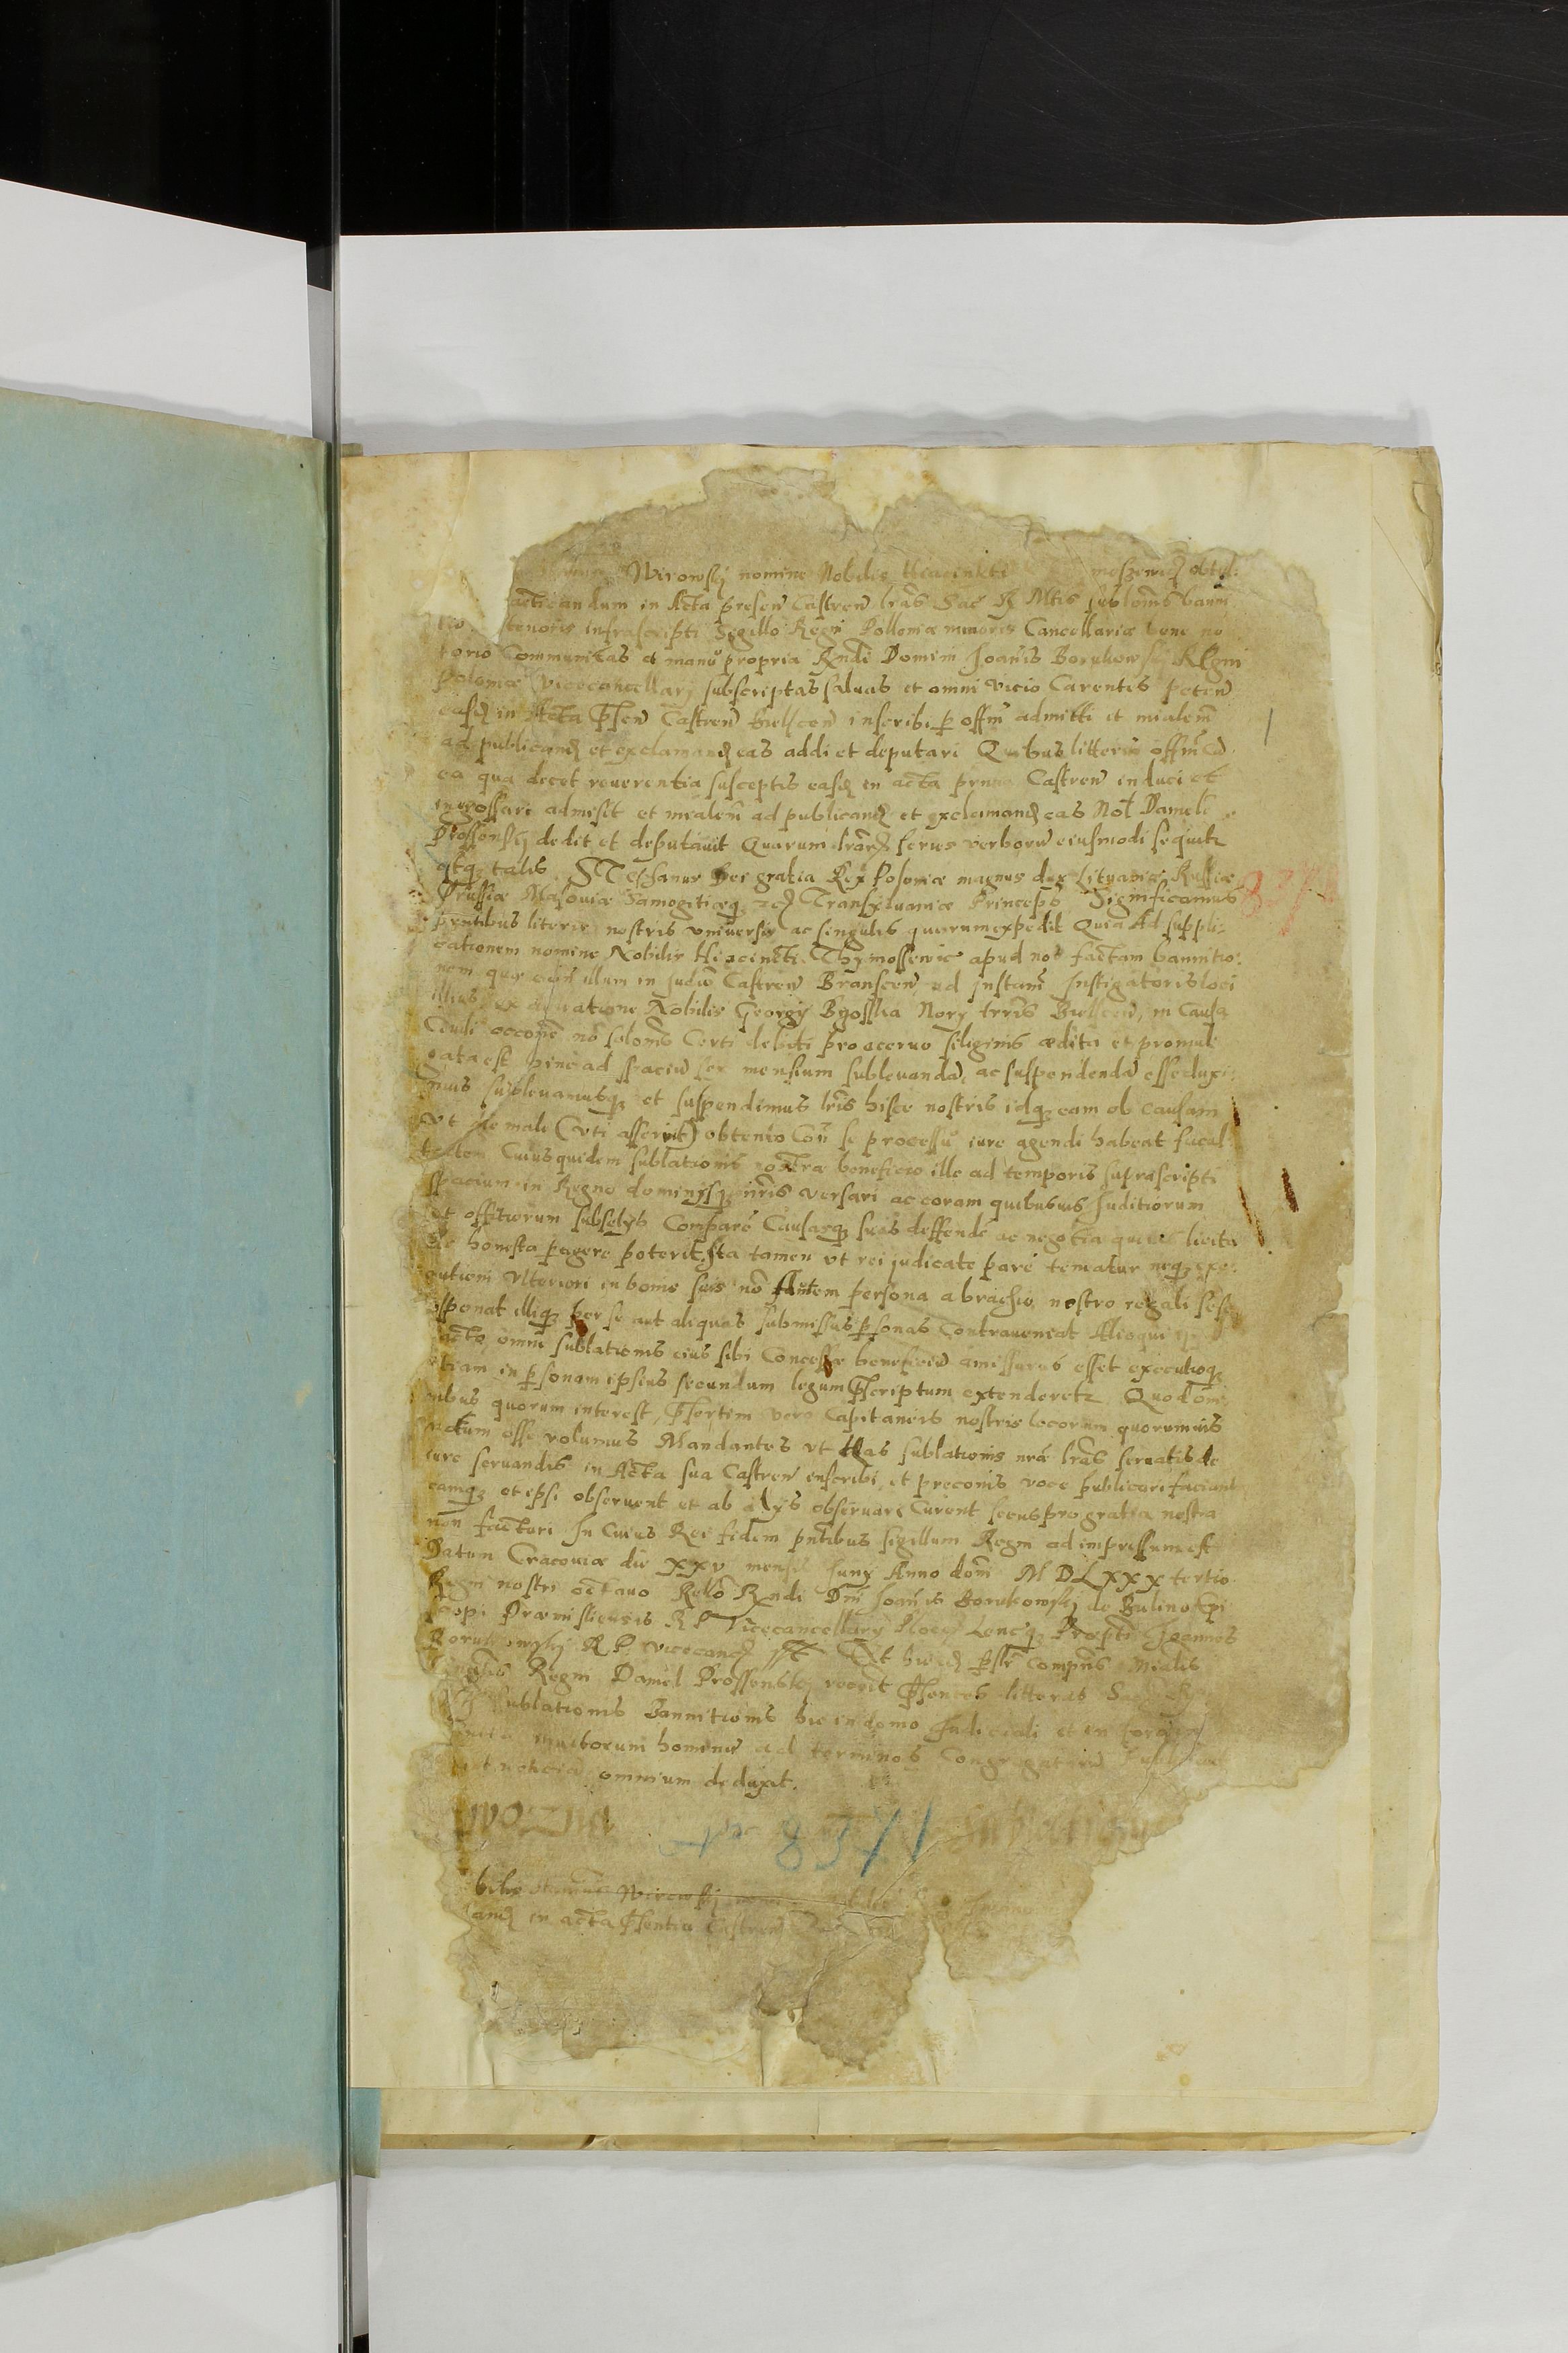 Wirowskj nomine Nobilis Hiacinkti moszewicz obtul.
acticandum in Acta presen Castren lras Sac R Mtis subloms bann
tenoris infrascripti Sigillo Regni Polloniæ minoris Cancellariæ bene no
torio Communitas et manu propria Rndi Domini Joanis Borukowskj Regni
Poloniæ vicecancellarj subscriptas saluas et omni vicio Carentes peten
easd in Acta Psen Castren Bielscen inscribi p offm admitti et mialem
ad publicand et exclamand eas addi et deputari Quibus litteris offm
ea qua decet reuerentia susceptis easd in acta pnua Castren induci et
ingrossari admisit et mialem ad publicand et exclamand eas Nol Daniele
Prossenskj dedit et deputauit Quarum lrar series verborum eiusmodi sequitr
estq talis. STephanus Dei gratia Rex Poloniæ magnus dux Lituaniæ Russiæ
Prussiæ Masouiæ Samogitiæq etc Transyluaniæ Princeps Significamus
pntibus literis nostris vniuersis ac singulis quorum expedit Quia Ad suppli:
cationem nomine Nobilis Hiacincti Thymossewic apud nos factam bannitio:
nem quæ illum in Judio Castren Branscen ad Instam Instigatoris loci
illius ex delatione Nobilis Georgij Bgosska Nory trris Bielscen, in Causa
Ciuili occone no solonis Certi debiti pro aceruo siliginis ædita et promul
gata est hinc ad spaciu sex mensium subleuanda, ac suspendenda esse duxi:
mus subleuamusq et suspendimus lris hisce nostris idq eam ob causam
vt de male (vti asserit) obtento Con se processu iure agendi habeat facul
tatem Cuiusquidem sublationis nostræ beneficio ille ad temporis suprascripti
spacium in Regno dominijsq nris versari ac coram quibusuis Juditiorum
et officiorum subselijs Compare Causasq suas deffende ac negotia quæuis licita
ac honesta pagere poterit, Ita tamen vt rei judicate pare teneatur neq exe:
cutioni vlteriori in bonis suis no Autem persona a brachio nostro regali sese
opponat illiq per se aut aliquas submissas psonas Contraueniat Alioqui
facto, omni sublationis eius sibi Concessæ beneficio amissurus esset executioq
etiam in psonam ipsius secundum legum Pscriptum extenderetr. Quod om:
nibus quorum interest, Psertim vero Capitaneis nostris locorum quorumuis
notum esse volumus Mandantes vt has sublationis nræ lras seruatis de
iure seruandis in Acta sua Castren inscribi et preconis voce publicari faciant
eamq et ipsi obseruent et ab alijs obseruari Curent secus pro gratia nostra
non facturi. In Cuius Rei fidem pntibus sigillum Regni ad impressum est
Datum Cracouiæ die xxv mensis Junij Anno dom MDLxxx tertio
Regni nostri octauo Relo Rndi Dni Joanis Borukowskj de Bulino Epi
scopi Præmisliensis R P Vicecancellarij Plocen Lencq Præpti Joannes
Borukowskj R P vicecanc sst Et hic id psr compns Mialis
Regni Daniel Prossenskj recoit Psences litteras Sac
sublationis Bannitionis hic in domo Judiciali et in foro
multorum hominum ad terminos Congregatorum
noticia omnium deduxit.
wozni
No 8371
Wirowskj
in acta Psentia Castren